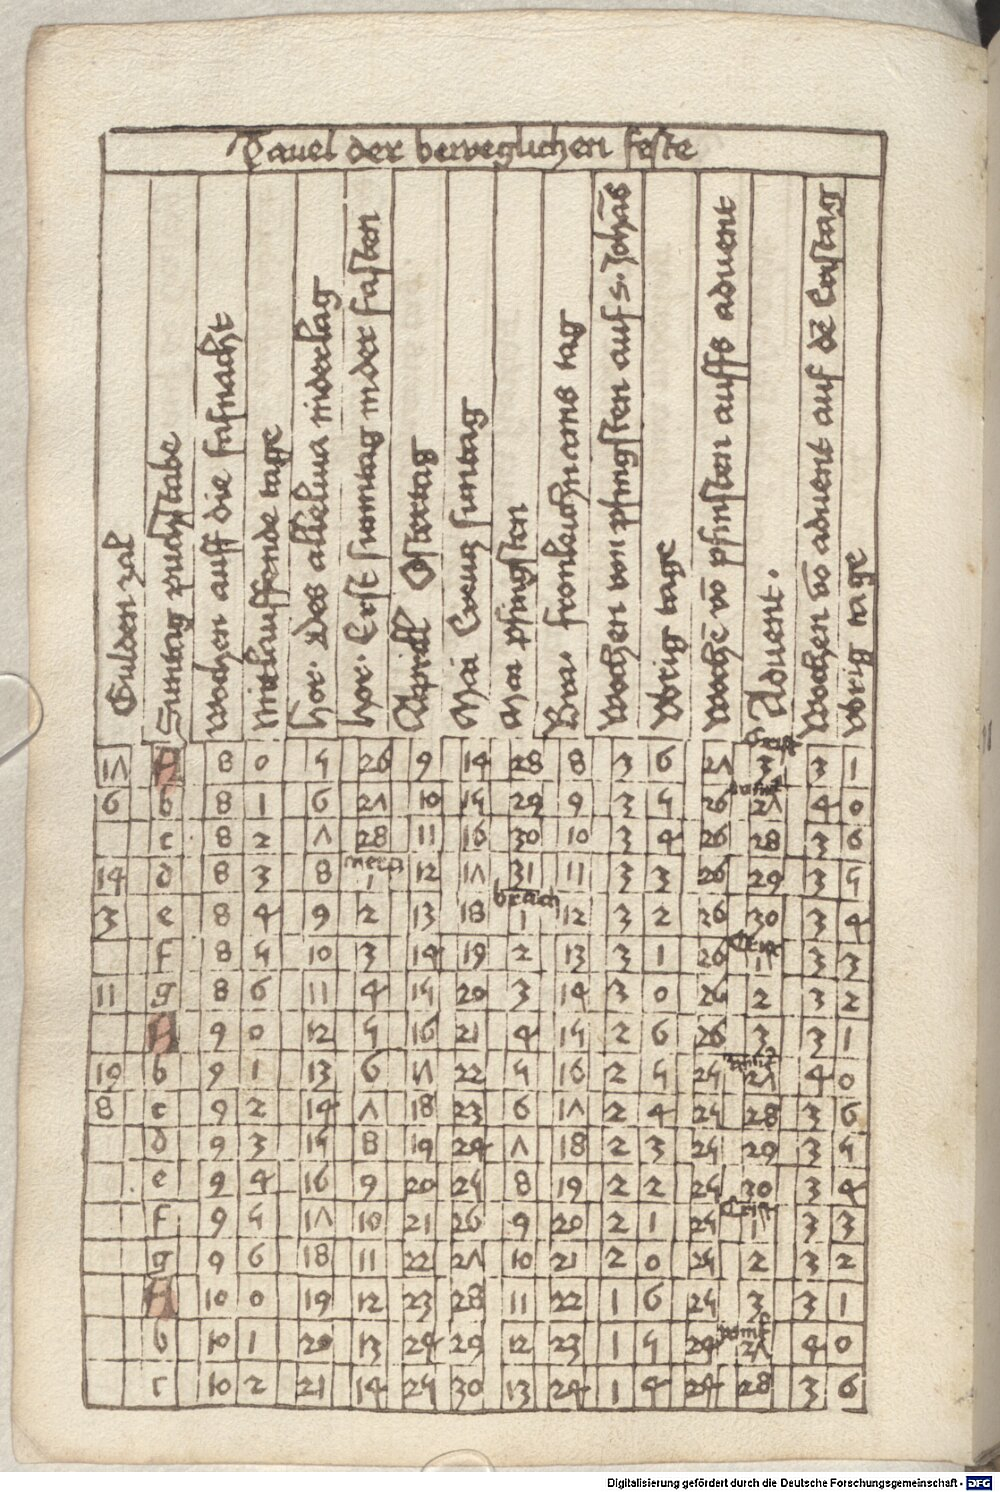 Tauel der beweglichen feste
Gulden zal
Suntag puchstabe
Wochen auff die fasnacht
Mitlauffende tage
hor. Des alleluia niderlag
hor. Erst sunntag in der fasten
Apprill Ostertag
Mai Creucz suntag
Mai pfingsten
Bra. fronleichnams tag
Wochen von pfingsten auf s. Johãs
Vbrig tage
Wochẽ võ pfinsten auffs aduent
Aduent.
Wochen võ aduent auf dẽ Cristag
Vbrig tage
Crist
17 A 8 0 5 26 9 14 28 8 3 6 27 3 3 1
6 b 8 1 6 27 10 15 29 9 3 5 26 27 4 0
c 8 2 7 28 11 16 30 10 3 4 26 28 3 6
mercz
14 d 8 3 8 1 12 17 31 11 3 3 26 29 3 5
brach
3 e 8 4 9 2 13 18 1 12 3 2 26 30 3 4
Crist
f 8 5 10 3 14 19 2 13 3 1 26 1 3 3
11 g 8 6 11 4 15 20 3 14 3 0 26 2 3 2
A 9 0 12 5 16 21 4 15 2 6 26 3 3 1
19 b 9 1 13 6 17 22 5 16 2 5 25 27 4 0
8 c 9 2 14 7 18 23 6 17 2 4 25 28 3 6
d 9 3 15 8 19 24 7 18 2 3 25 29 3 5
e 9 4 16 9 20 25 8 19 2 2 25 30 3 4
Crist
f 9 5 17 10 21 26 9 20 2 1 25 1 3 3
g 9 6 18 11 22 27 10 21 2 0 25 2 3 2
A 10 0 19 12 23 28 11 22 1 6 25 3 3 1
b 10 1 20 13 24 29 12 23 1 5 24 27 4 0
c 10 2 21 14 25 30 13 24 1 4 24 28 3 6
Digitalisierung gefördert durch die Deutsche Forschungsgemeinschaft - DFG